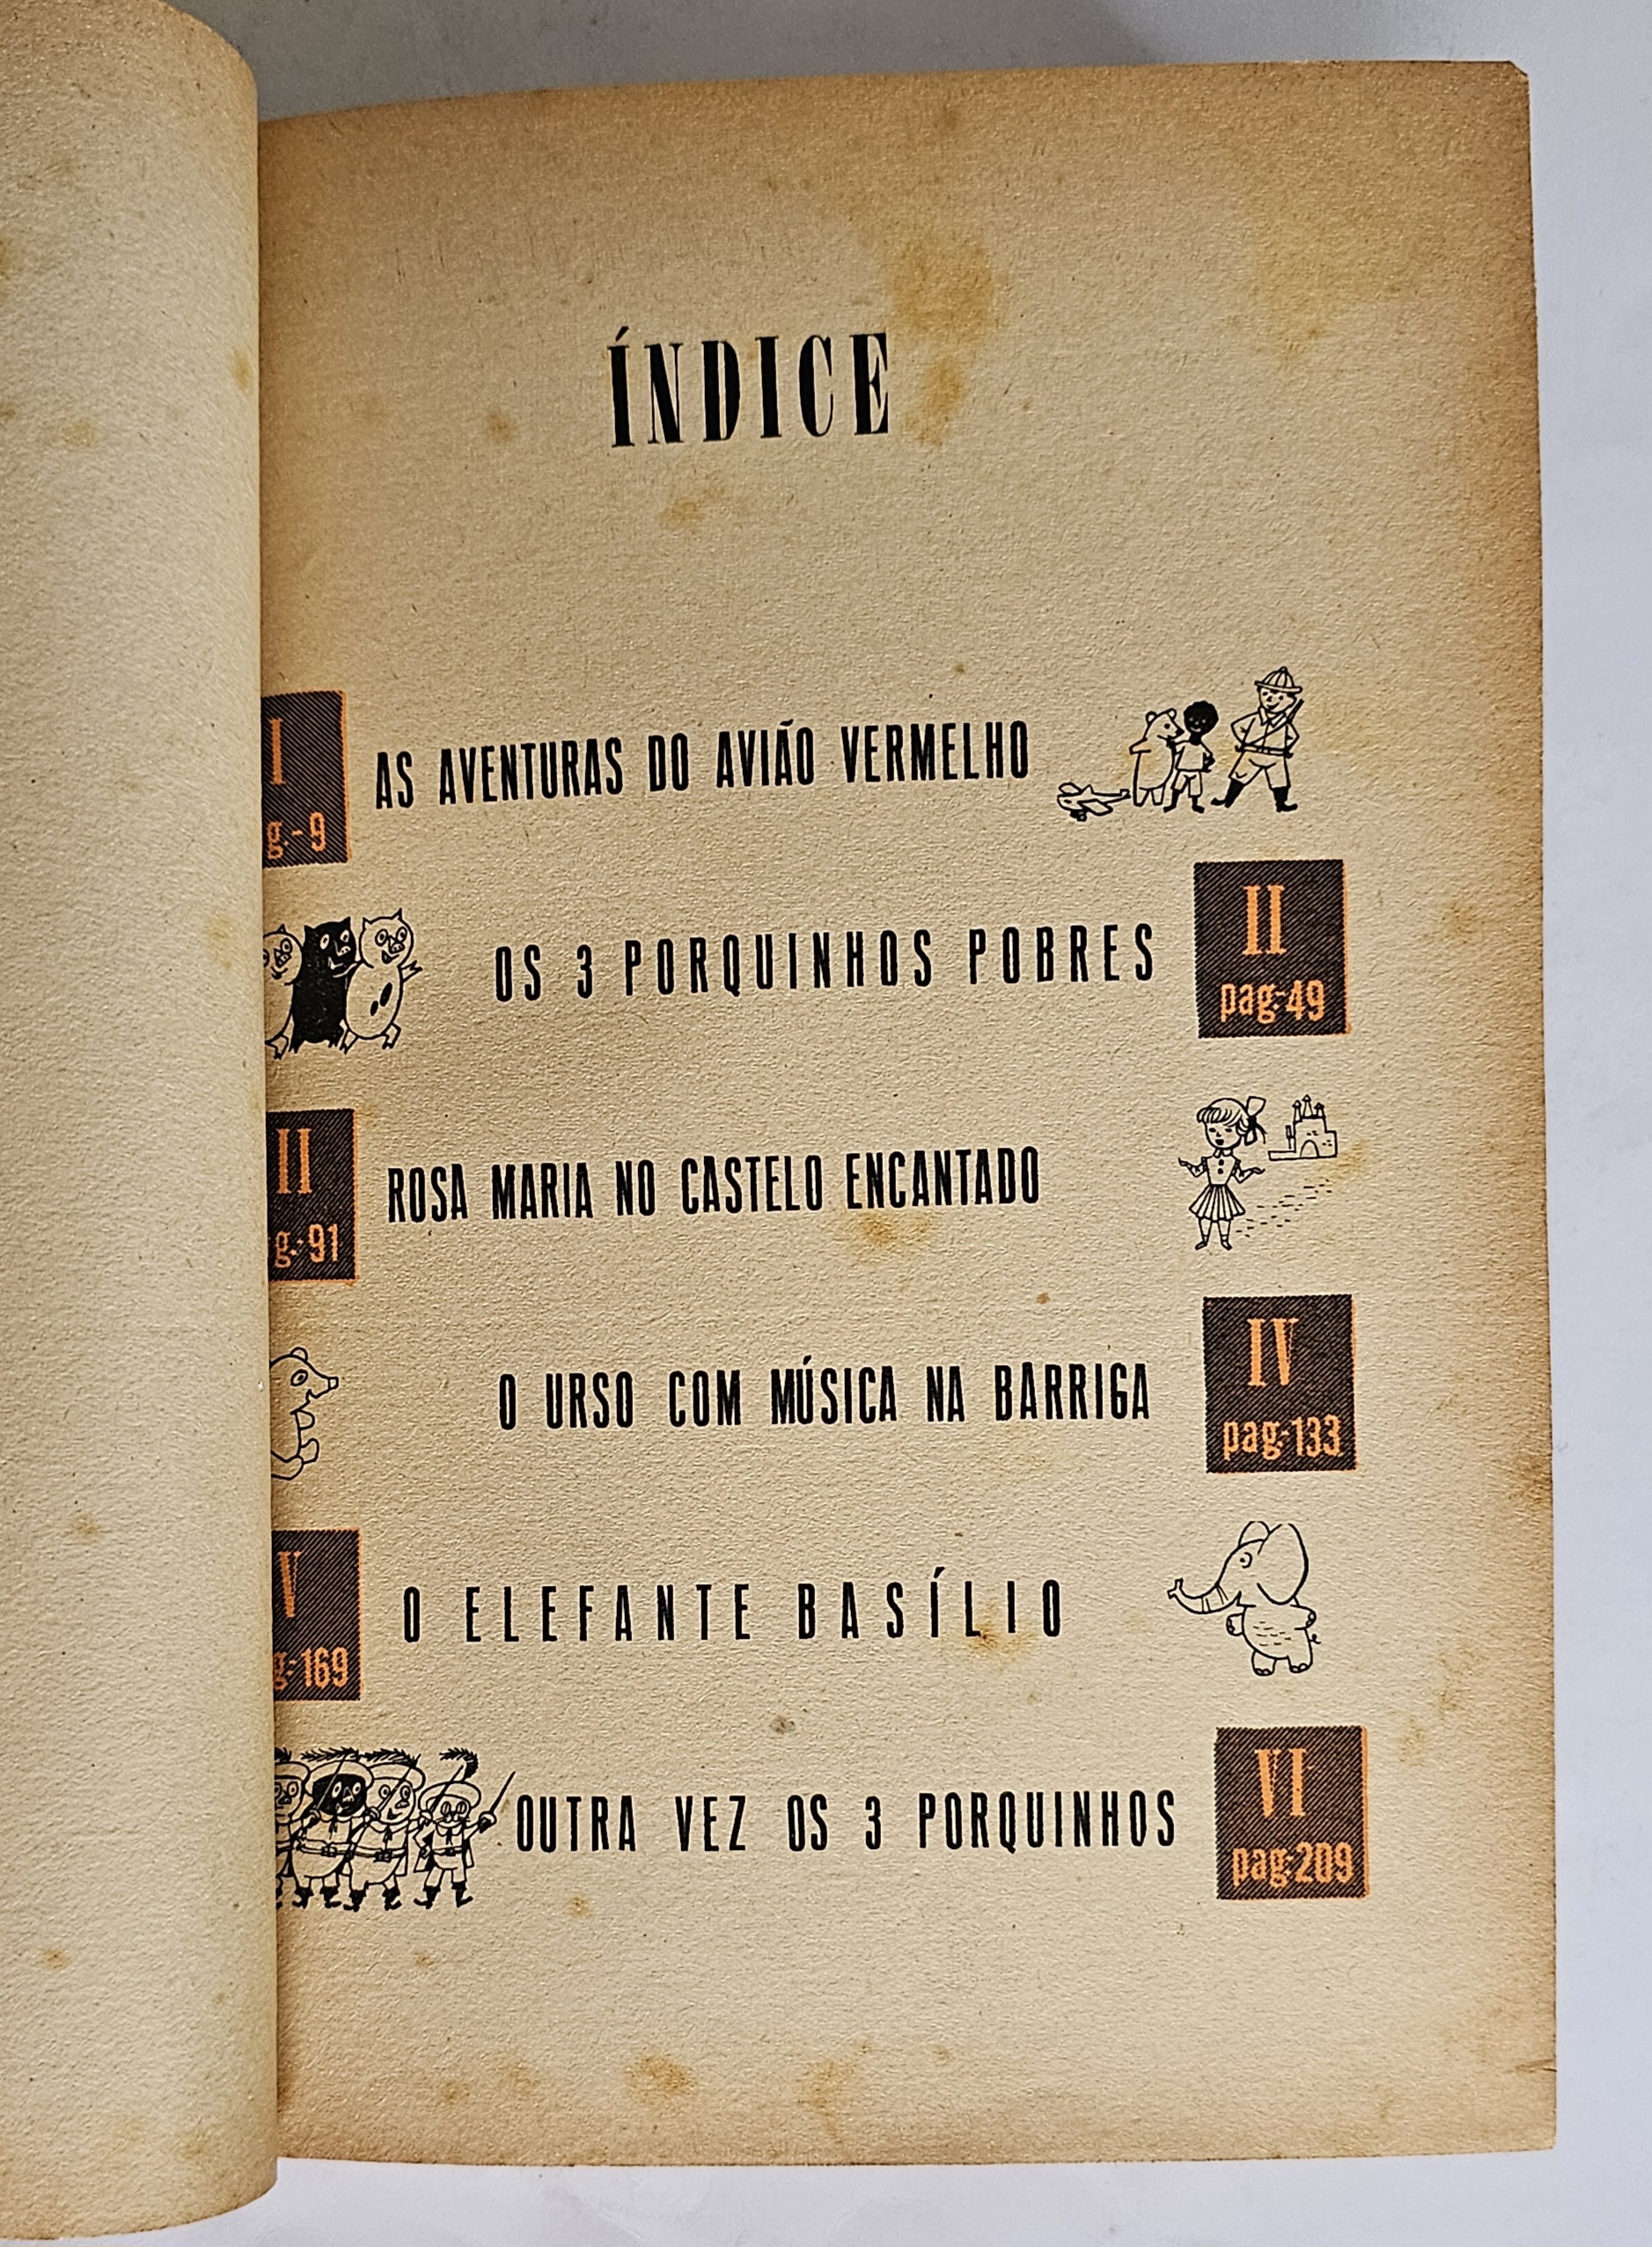 ÍNDICE
I
g.-9
AS AVENTURAS DO AVIÃO VERMELHO
OS 3 PORQUINHOS POBRES
II
pag.-49
II
g.-91
ROSA MARIA NO CASTELO ENCANTADO
O URSO COM MÚSICA NA BARRIGA
IV
pag.-133
V
g.-169
O ELEFANTE BASÍLIO
OUTRA VEZ OS 3 PORQUINHOS
VI
pag.-209